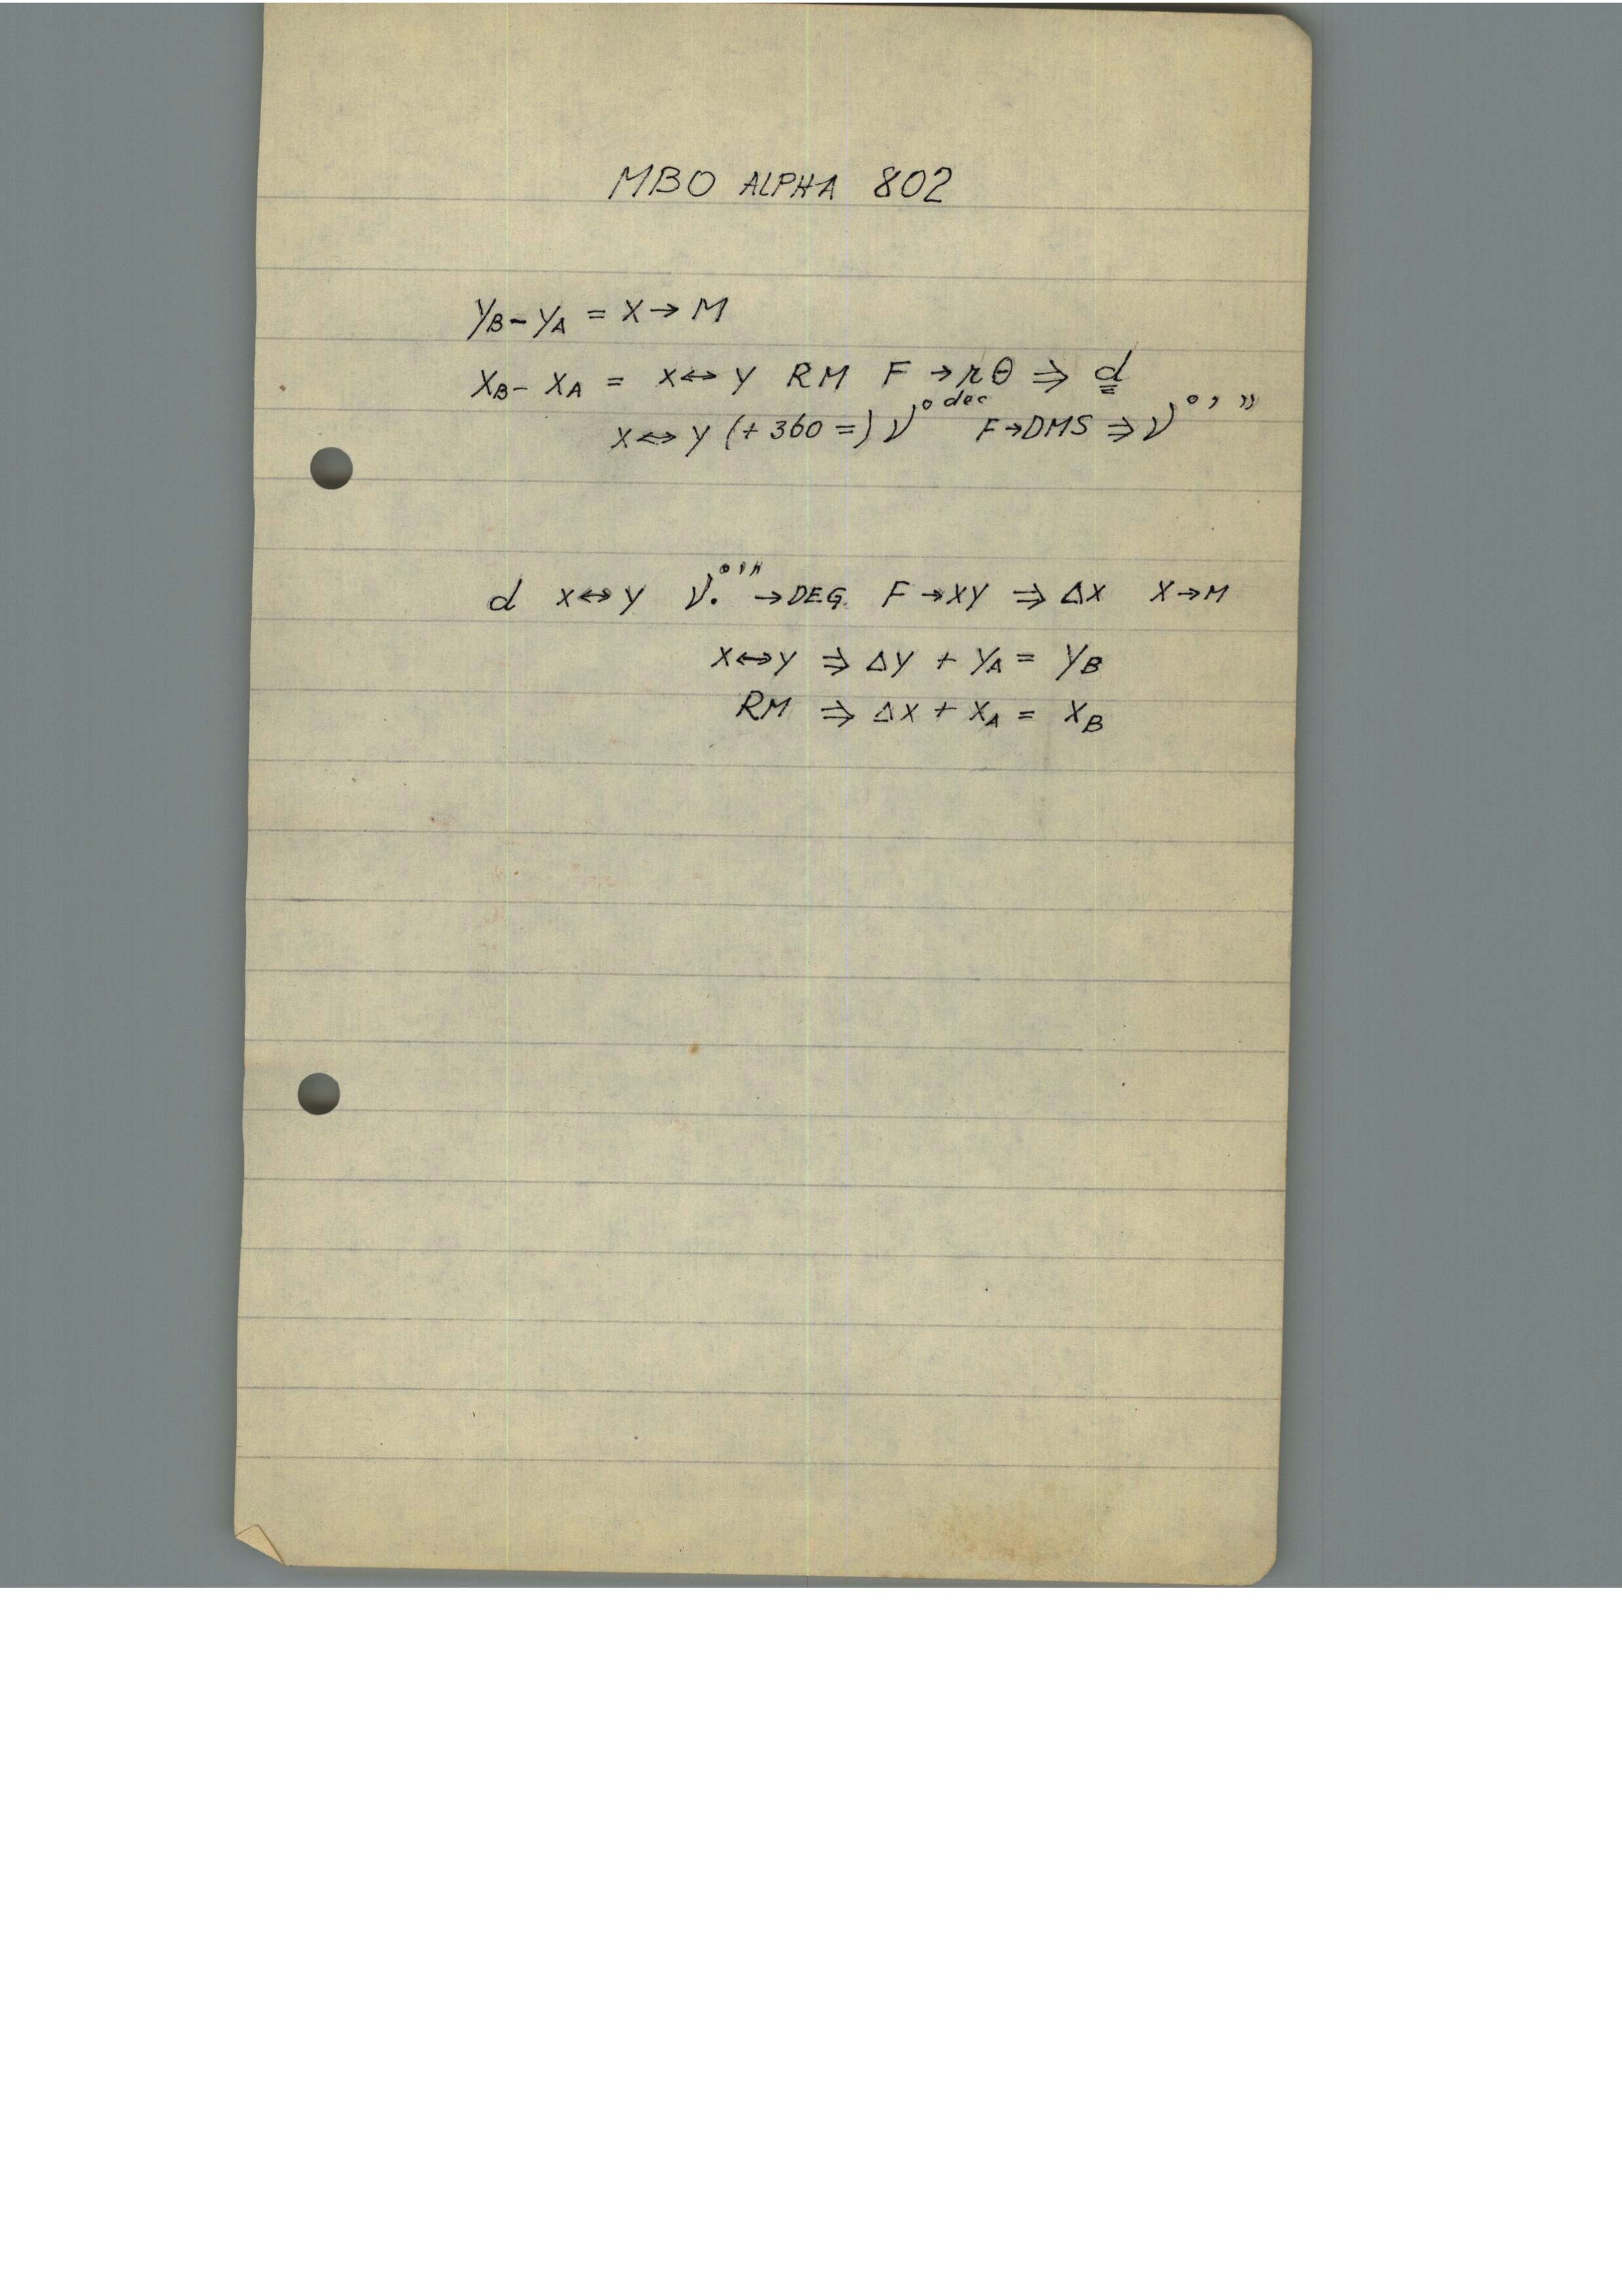 MBO ALPHA 802
yB - yA = X→M
XB - XA = X↔Y RM F →rθ ⇒ d
X↔Y (+360=) ν° dec F→DMS ⇒ ν° ' "
d X↔Y ν.° ' " →DEG. F →XY ⇒ ΔX X→M
X↔Y ⇒ Δy + YA = YB
RM ⇒ ΔX + XA = XB